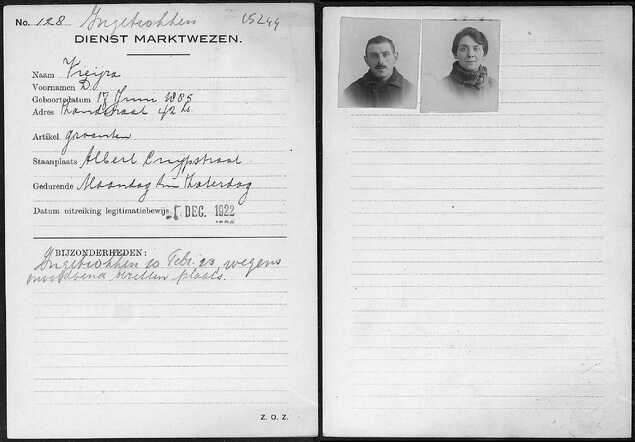 No. 128 Ingetrokken 15249
DIENST MARKTWEZEN.
Naam Vreijra
Voornamen D.
Geboortedatum 17 Juni 1885
Adres 42
Artikel groenten
Staanplaats Albert Cuypstraat
Gedurende Maandag t/m Zaterdag
Datum uitreiking legitimatiebewijs DEC. 1922
BIJZONDERHEDEN:
Ingetrokken 20 Febr. 23 wegens
onvoldoend bezetten plaats.
Z. O. Z.